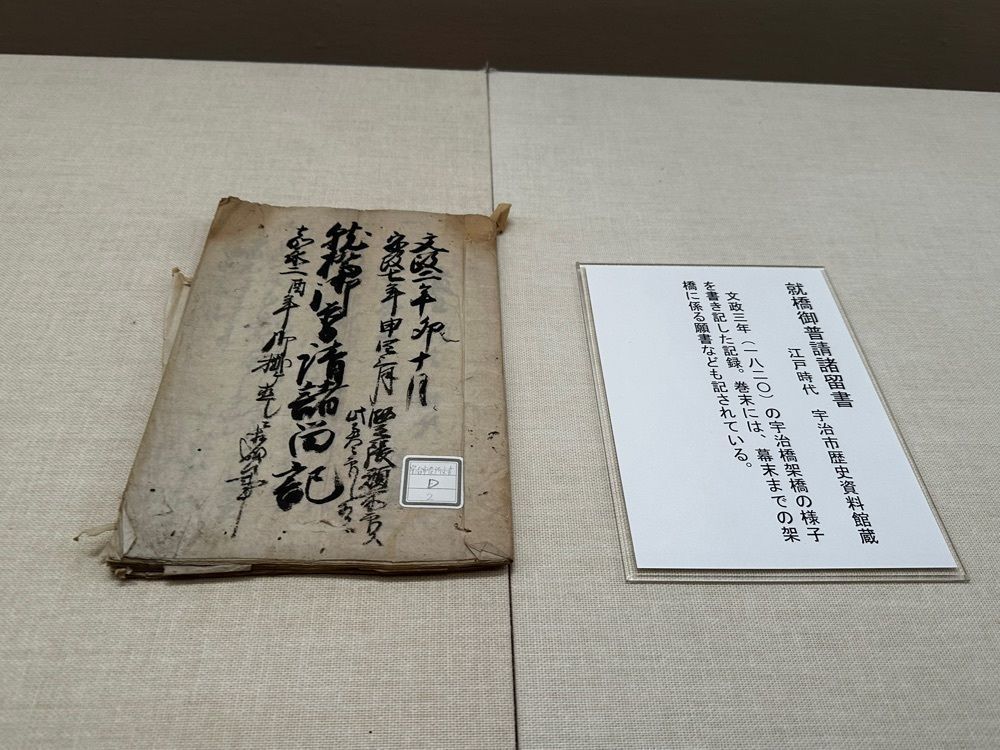 就橋御普請諸留書
江戸時代 宇治市歴史資料館蔵
文政三年（一八二〇）の宇治橋架橋の様子
を書き記した記録。巻末には、幕末までの架
橋に係る願書なども記されている。
文政二年卯十月
安政七年申三月
就橋御普請諸留記
嘉永二酉年
D
2